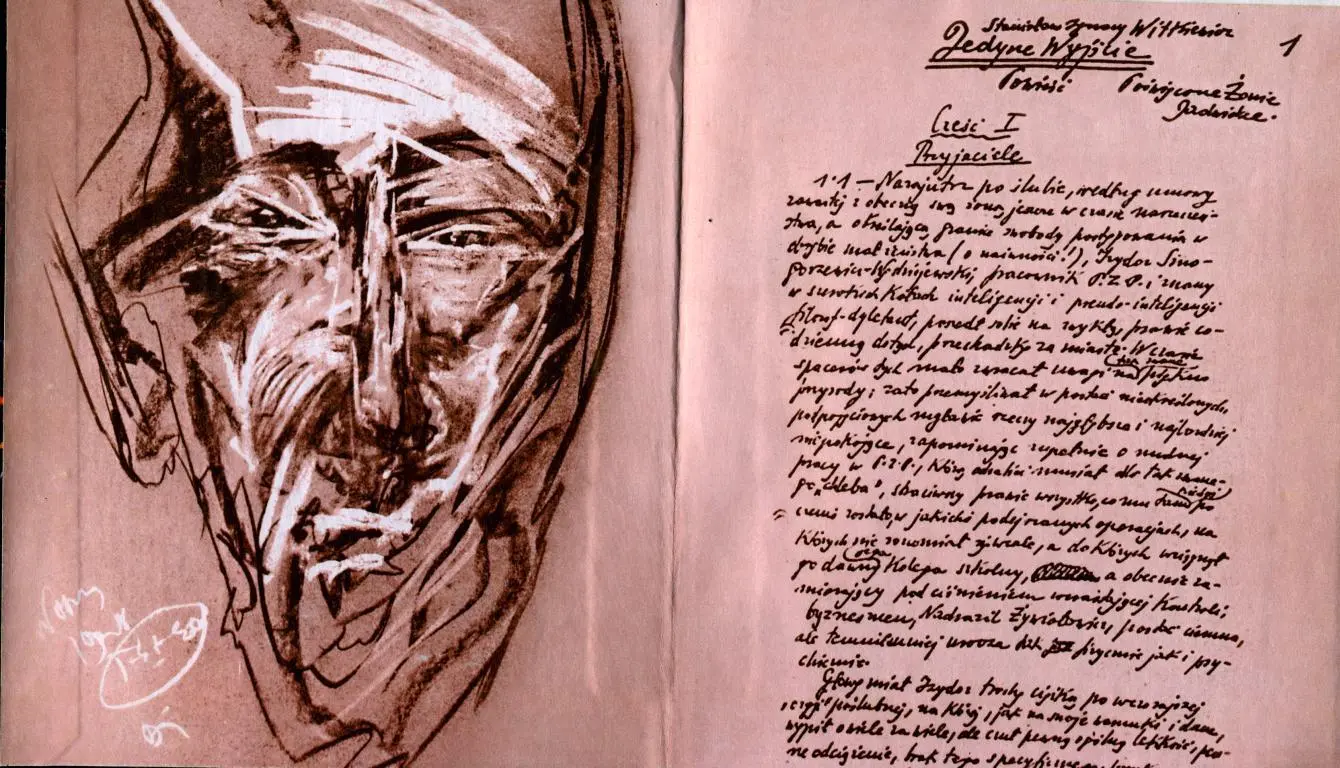 Stanisław Ignacy Witkiewicz
1
Jedyne Wyjście
Powieść Poświęcone Żonie
Jadwidze.
Część I
Przyjaciele
1·1 — Nazajutrz po ślubie, według umowy
zawartej z obecną swą żoną jeszcze w czasie narzeczeń-
stwa, a określającą prawie swobody postępowania w
małżeństwa (o naiwności!), Izydor Smo-
gorzewicz-Wędziejewski, pracownik P.Z.P. i znany
w szerokich kołach inteligencji i pseudo-inteligencji
filozof-dyletant, poszedł sobie na zwykłą, prawie co-
dzienną dotąd, przechadzkę za miasto. W czasie
(tak zwane)
spacerów tych mało zwracał uwagi na piękno
przyrody; zato przemyśliwał w postaci nieokreślonych,
półpojęciowych rzeczy najgłębsze i najbardziej
niepokojące, zapominając zupełnie o nudnej
pracy w P.Z.P., którą musiał dla tak zwane-
go „chleba", straciwszy prawie wszystko, co mu po
zostało, w jakichś podejrzanych operacjach, na
których nie rozumiał się wcale, a do których wciągnął
go dawny kolega szkolny, a obecnie za-
mierający pod ciśnieniem wzrastającej kontroli
byznesmen, Nadrazil Żywiołowicz, postać ciemna,
ale tak fizycznie jak i psy-
chicznie.
Głowę miał Izydor trochę ciężką po wczorajszej
poślubnej, na której, jak na swoje warunki i dane,
wypił o wiele za wiele, ale czuł pewną lekkość, pew-
ne odciążenie, brak tego